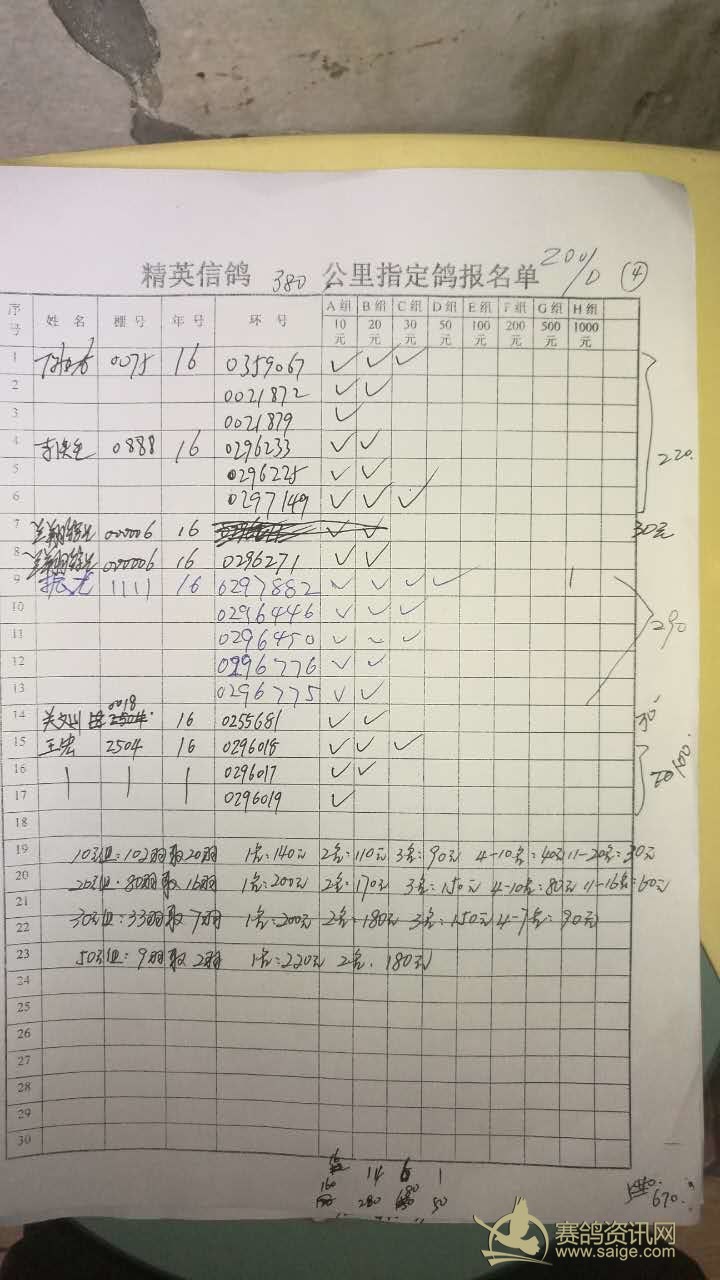 精英信鸽 380 公里指定鸽报名单 200/D ④
序号 姓名 棚号 年号 环号 A组 B组 C组 D组 E组 F组 G组 H组
10元 20元 30元 50元 100元 200元 500元 1000元
1 0075 16 0359067 ✓ ✓ ✓
2 0021872 ✓ ✓
3 0021879 ✓
220.
4 0888 16 0296233 ✓ ✓
5 0296225 ✓ ✓
6 0297149 ✓ ✓ ✓
7 000006 16 ✓ ✓ 30元
8 000006 16 0296271 ✓ ✓
9 1111 16 0297882 ✓ ✓ ✓ ✓
10 0296446 ✓ ✓ ✓
11 0296450 ✓ ✓ ✓
290
12 0296776 ✓ ✓
13 0296775 ✓ ✓
0018
14 关文山 16 0255681 ✓ ✓ 30
15 王宏 2504 16 0296018 ✓ ✓ ✓
16 0296017 ✓ ✓
17 0296019 ✓
18
19 10元组:102羽取20羽 1名:140元 2名:110元 3名:90元 4-10名:40元 11-20名:30元
20 20元组:80羽取16羽 1名:200元 2名:170元 3名:150元 4-10名:80元 11-16名:60元
21
22 30元组:33羽取7羽 1名:200元 2名:180元 3名:150元 4-7名:90元
23 50元组:9羽取2羽 1名:220元 2名:180元
24
25
26
27
28
29
30
14 6 1
160 280 180 50
670
赛鸽资讯网
www.saige.com